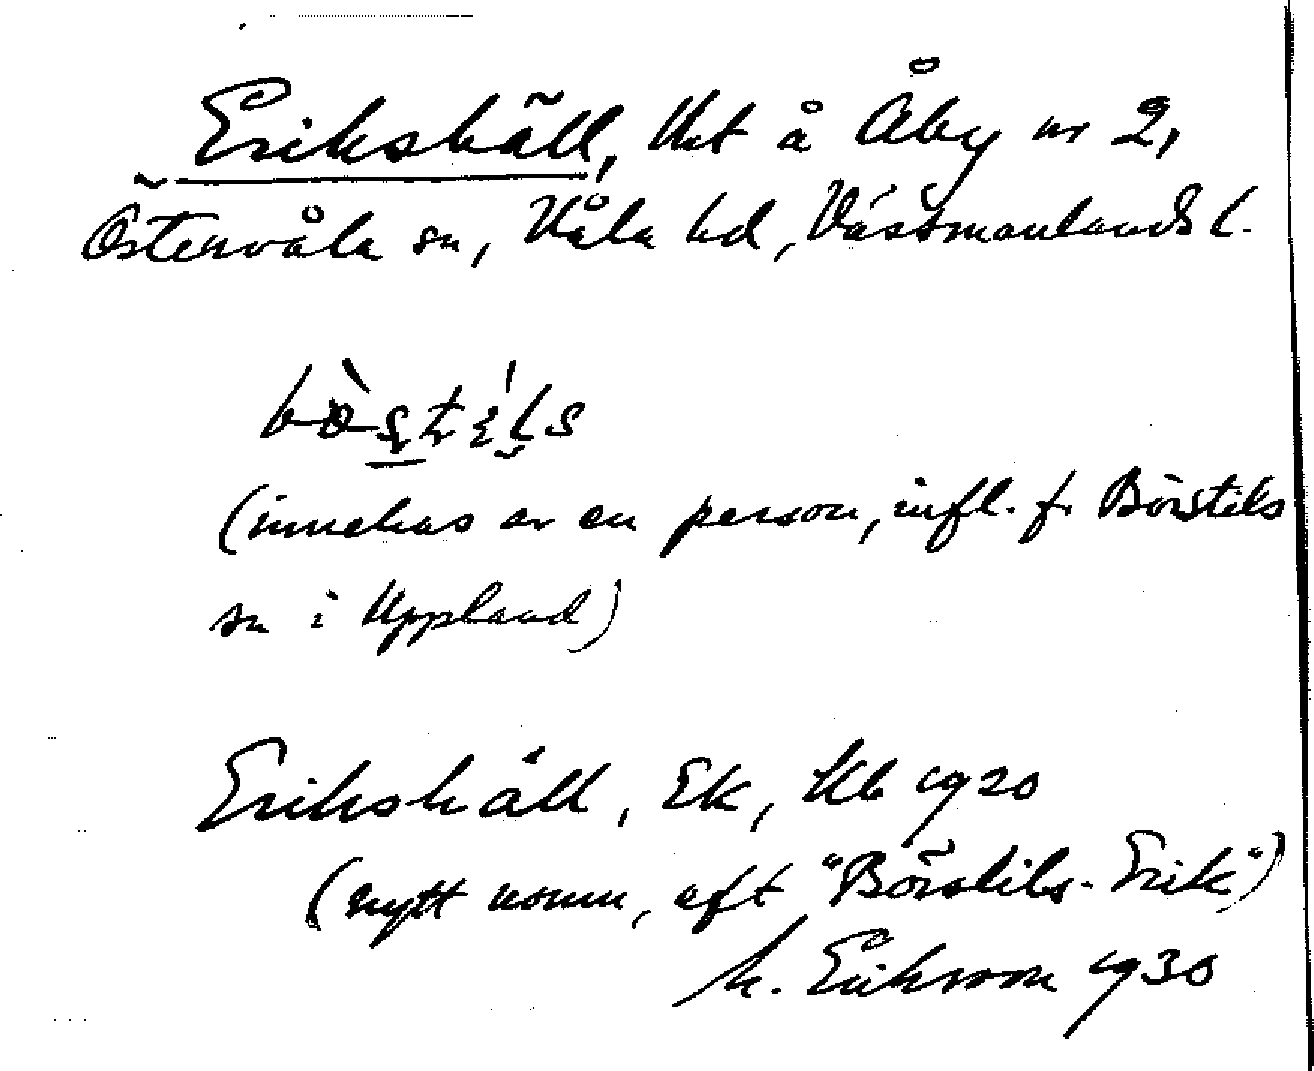 Erikshäll, lht å Åby nr 2,
Östervåla sn, Våla hd, Västmanlands l.
(innehas av en person, infl. fr Börstils
sn i Uppland)
Erikshäll, Ek, Kb 1920
(nytt namn, eft "Börstils-Erik")
M. Eriksson 1930